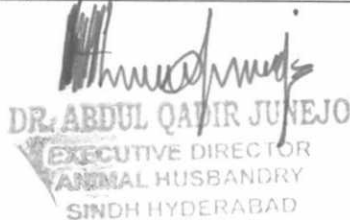 DR. ABDUL QADIR JUNEJO
EXECUTIVE DIRECTOR
ANIMAL HUSBANDRY
SINDH HYDERABAD